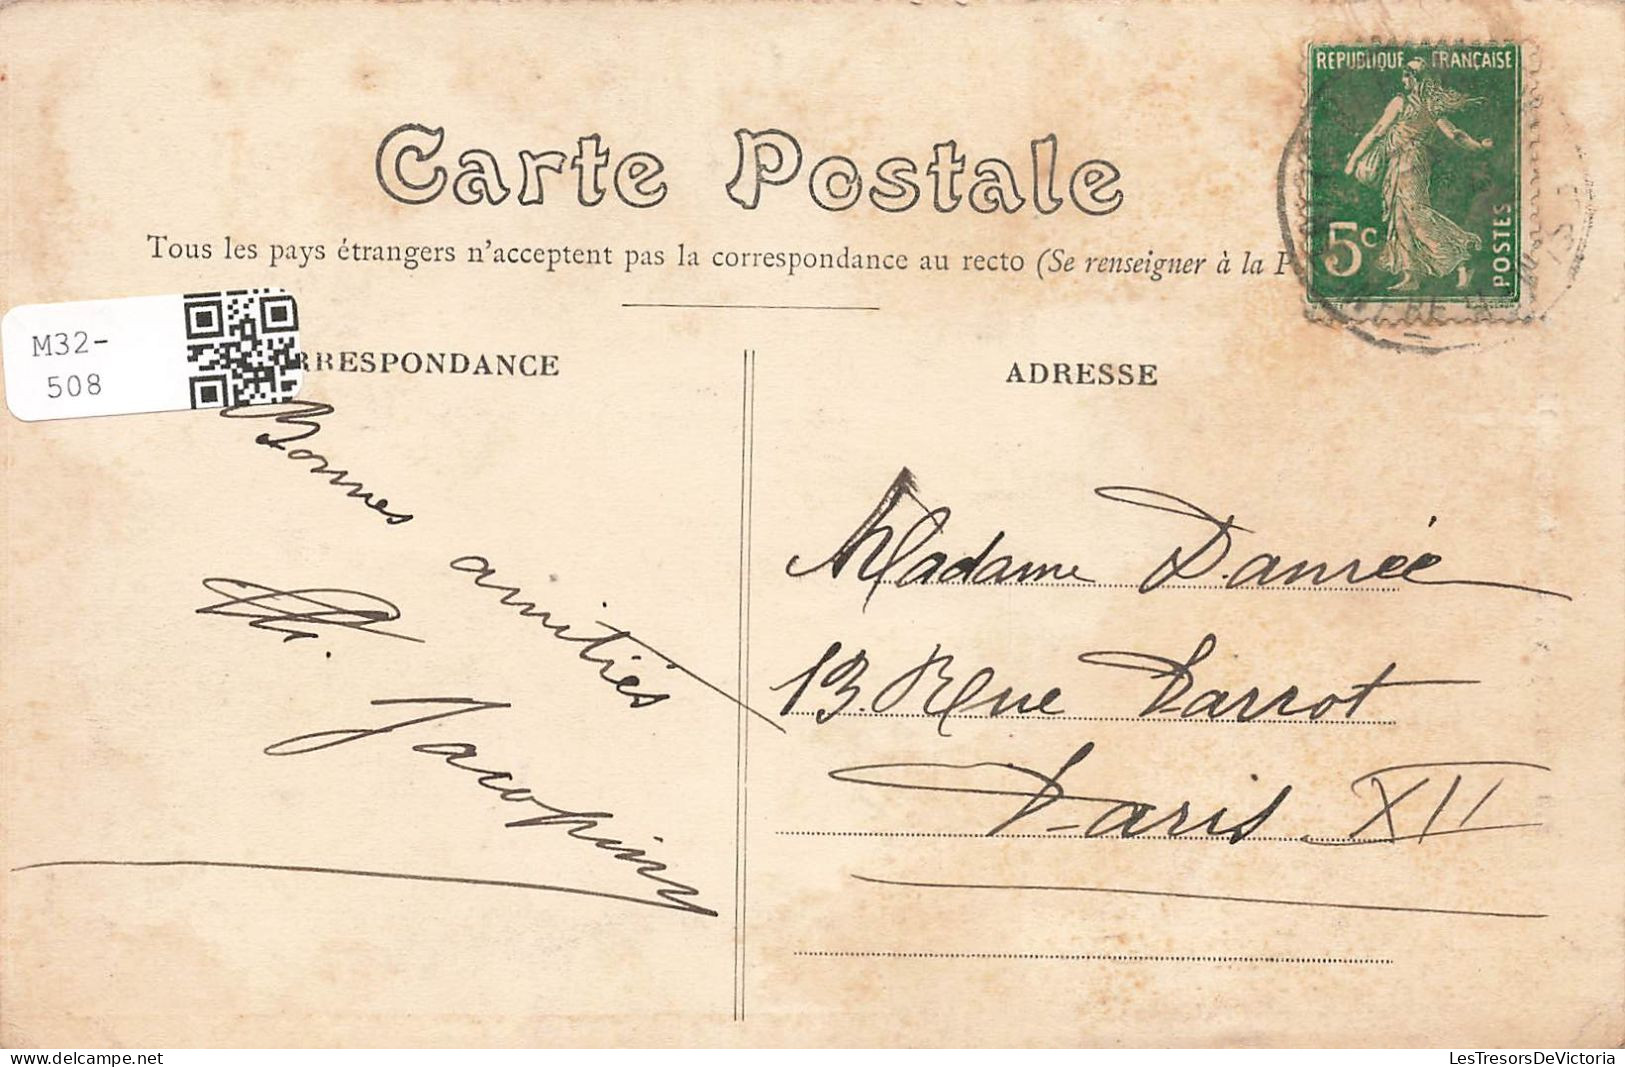 REPUBLIQUE FRANÇAISE
5c
POSTES
Carte Postale
Tous les pays étrangers n'acceptent pas la correspondance au recto (Se renseigner à la P
M32-
508
RRESPONDANCE
Bonnes amitiés
Jacopiny
ADRESSE
Madame Damrée
13 Rue Parrot
Paris XII
LesTresorsDeVictoria